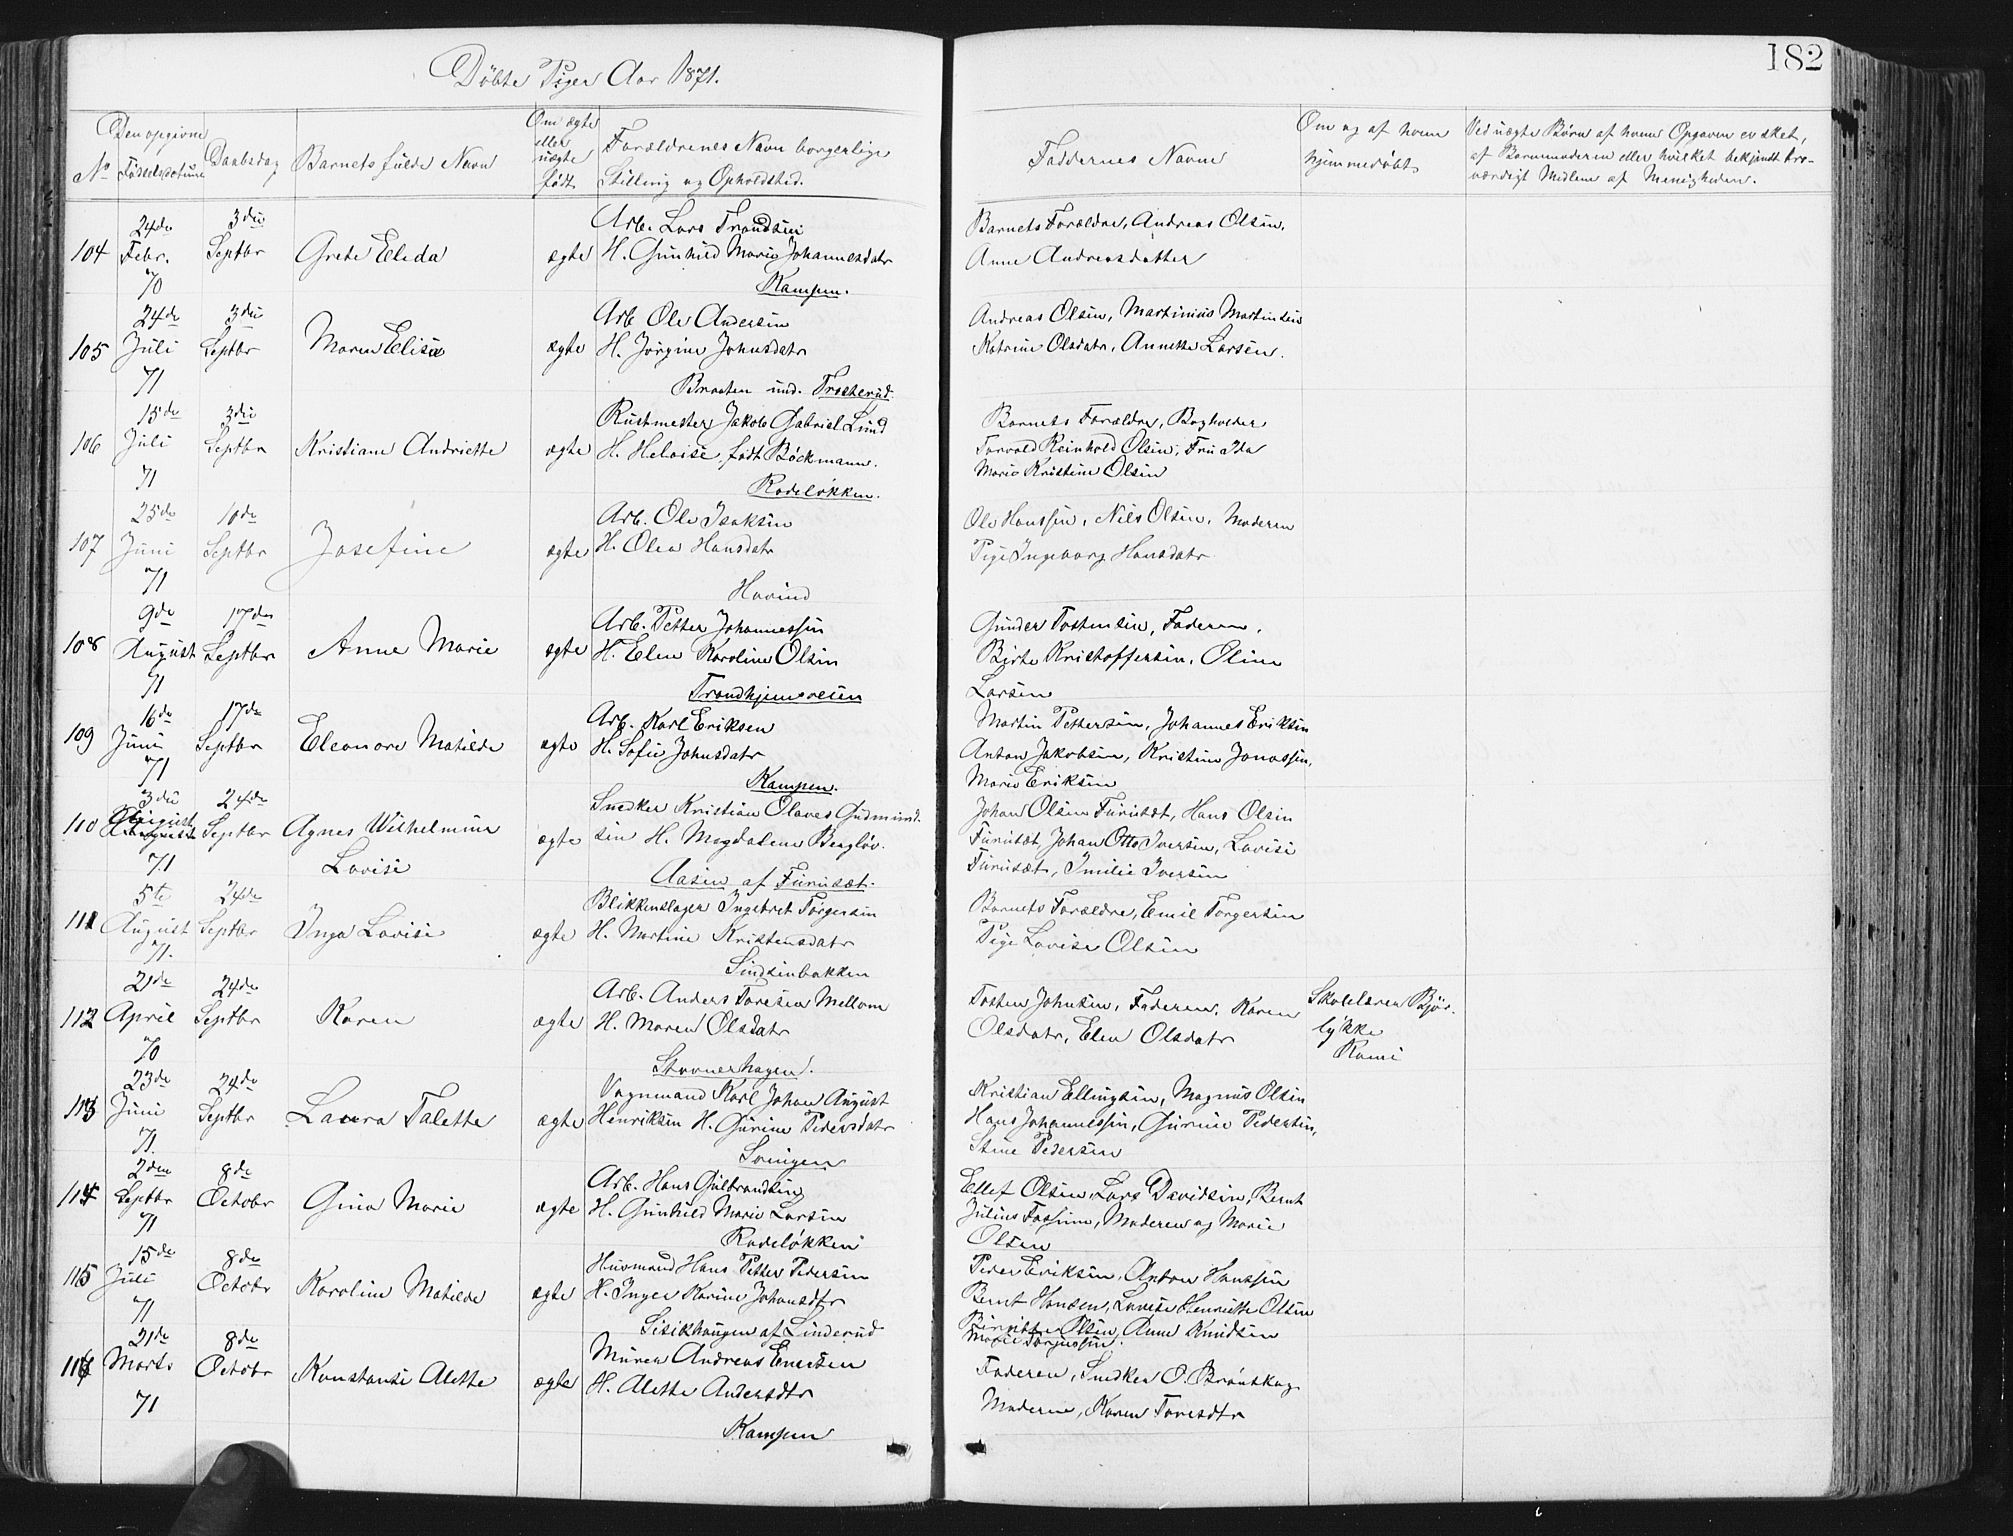 182
Døbte Piger Aar 1871.
No
Den opgivne Fødselsdatum
Daabsdag
Barnets fulde Navn
Om ægte eller uægte født
Forældrenes Navn borgerlige Stilling og Opholdsted.
Faddernes Navne
Om og af hvem hjemmedøbt
Ved uægte Børn af hvem Opgaven er sket,
af Barnemoderen eller hvilket bekjendt tro-
værdigt Medlem af Menigheden.
104 24de Febr. 70 3die Septbr Grete Elida ægte
Arb. Lars Trondsen
H. Gunhild Marie Johannesdatr
Kampen.
Barnets Forældre, Andreas Olsen,
Anne Andreasdatter
105 24de Juli 71 3die Septbr Maren Elise ægte
Arb Ole Andersen
H. Jørgine Johnsdatr
Braaten und. Trosterud.
Andreas Olsen, Martinius Martinsen
Katrine Olsdatr, Annette Larsen.
106 15de Juli 71 3die Septbr Kristiane Andriette ægte
Rustmester Jakob Gabriel Lund
H. Heloise, født Bøckmann.
Rodeløkken.
Barnets Forældre, Bogholder
Torvald Reinhold Olsen, Fru Ida
Marie Kristine Olsen
107 25de Juni 71 10de Septbr Josefine ægte
Arb. Ole Isaksen
H. Olea Hansdatr
Hovind
Ole Hanssen, Nils Olsen, Moderen
Pige Ingeborg Hansdatr
108 9de August 71 17de Septbr Anna Marie ægte
Arb. Petter Johannessen
H. Elen Karoline Olsen
Trondhjemsveien
Gunder Tostensen, Faderen,
Birte Kristoffersen, Oline
Larsen
109 16de Juni 71 17de Septbr Eleonora Matilde ægte
Arb. Karl Eriksen
H. Sofie Johnsdatr
Kampen.
Martin Pettersen, Johannes Eriksen
Anton Jakobsen, Kristine Jonassen,
Marie Eriksen
110 3die August 71 24de Septbr Agnes Wilhelmine
Lovise
ægte
Snedker Kristian Olaves Gudmund-
sen H. Magdalena Bergløv.
Aasen af Furusæt.
Johan Olsen Furusæt, Hans Olsen
Furusæt, Johan Otto Iversen, Lovise
Furusæt, Emilie Iversen
111 5te August 71. 24de Septbr Inga Lovise ægte
Blikkenslager Ingebret Torgersen
H. Martine Kristensdatr
Sindsenbakken
Barnets Forældre, Emil Torgersen
Pige Lovise Olsen
112 21de April 70 24de Septbr Karen ægte
Arb. Anders Toresen Mellom
H. Maren Olsdatr
Stovnerhagen.
Tosten Johnsen, Faderen, Karen
Olsdatr, Elen Olsdatr
Skolelærer Bjør-
lykke
113 23de Juni 71. 24de Septbr Laura Talette ægte
Vognmand Karl Johan August
Henriksen H. Gurine Pedersdatr
Svingen
Kristian Ellingsen, Magnus Olsen
Hans Johannessen, Gurine Pedersen,
Stine Pedersen
114 2den Septbr 71 8de Octobr Gina Marie ægte
Arb. Hans Gulbrandsen
H. Gunhild Marie Larsen
Rodeløkken
Ellef Olsen, Lars Davidsen, Bernt
Julius Fossum, Moderen og Marie
Olsen
115 15de Juli 71 8de Octobr Karoline Matilde ægte
Husmand Hans Petter Pedersen
H. Inger Karine Johansdtr
Sisikhaugen af Linderud
Peder Eriksen, Anton Hanssen
Bernt Hansen, Lovise Henriette Olsen
Birgitte Olsen, Anne Knudsen
116 21de Marts 71 8de Octobr Konstanse Alette ægte
Murer Andreas Enersen
H. Alette Andersdtr
Kampen
Faderen, Snedker O. Brauskog
Moderen, Karen Toresdtr